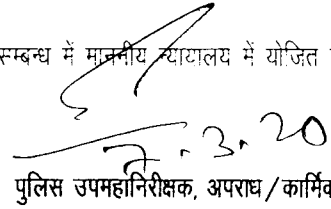 सम्बन्ध में माननीय न्यायालय में योजित
7.3.20
पुलिस उपमहानिरीक्षक, अपराध/कार्मिक